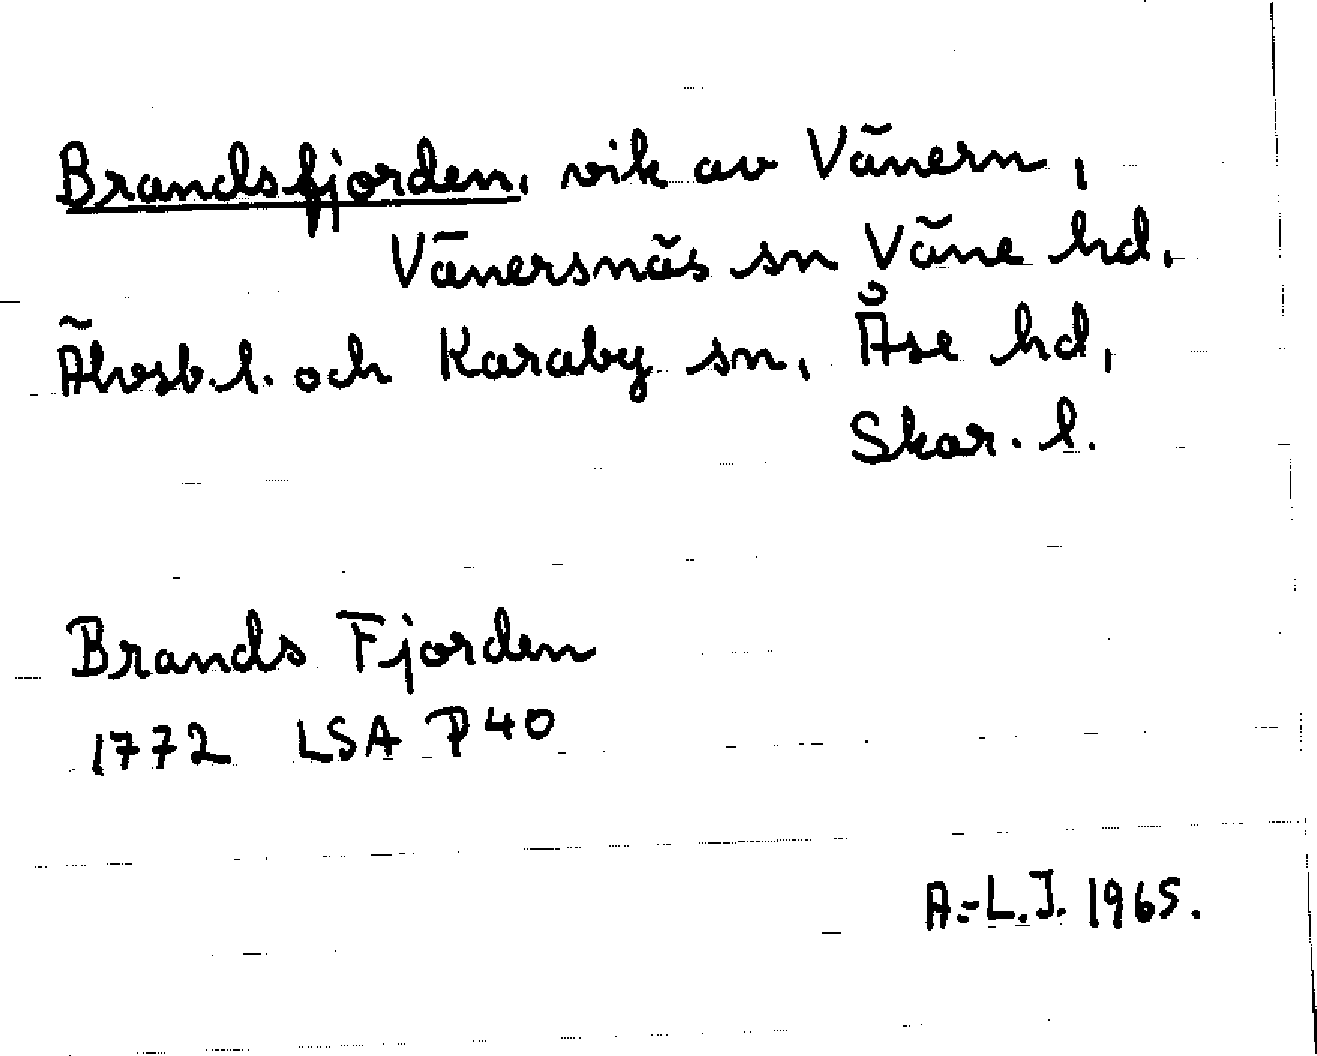 Brandsfjorden, vik av Vänern,
Vänersnäs sn Väne hd,
Älvsb. l. och Karaby sn, Åse hd,
Skar. l.
Brands Fjorden
1772 LSA P 40
A.-L.J. 1965.